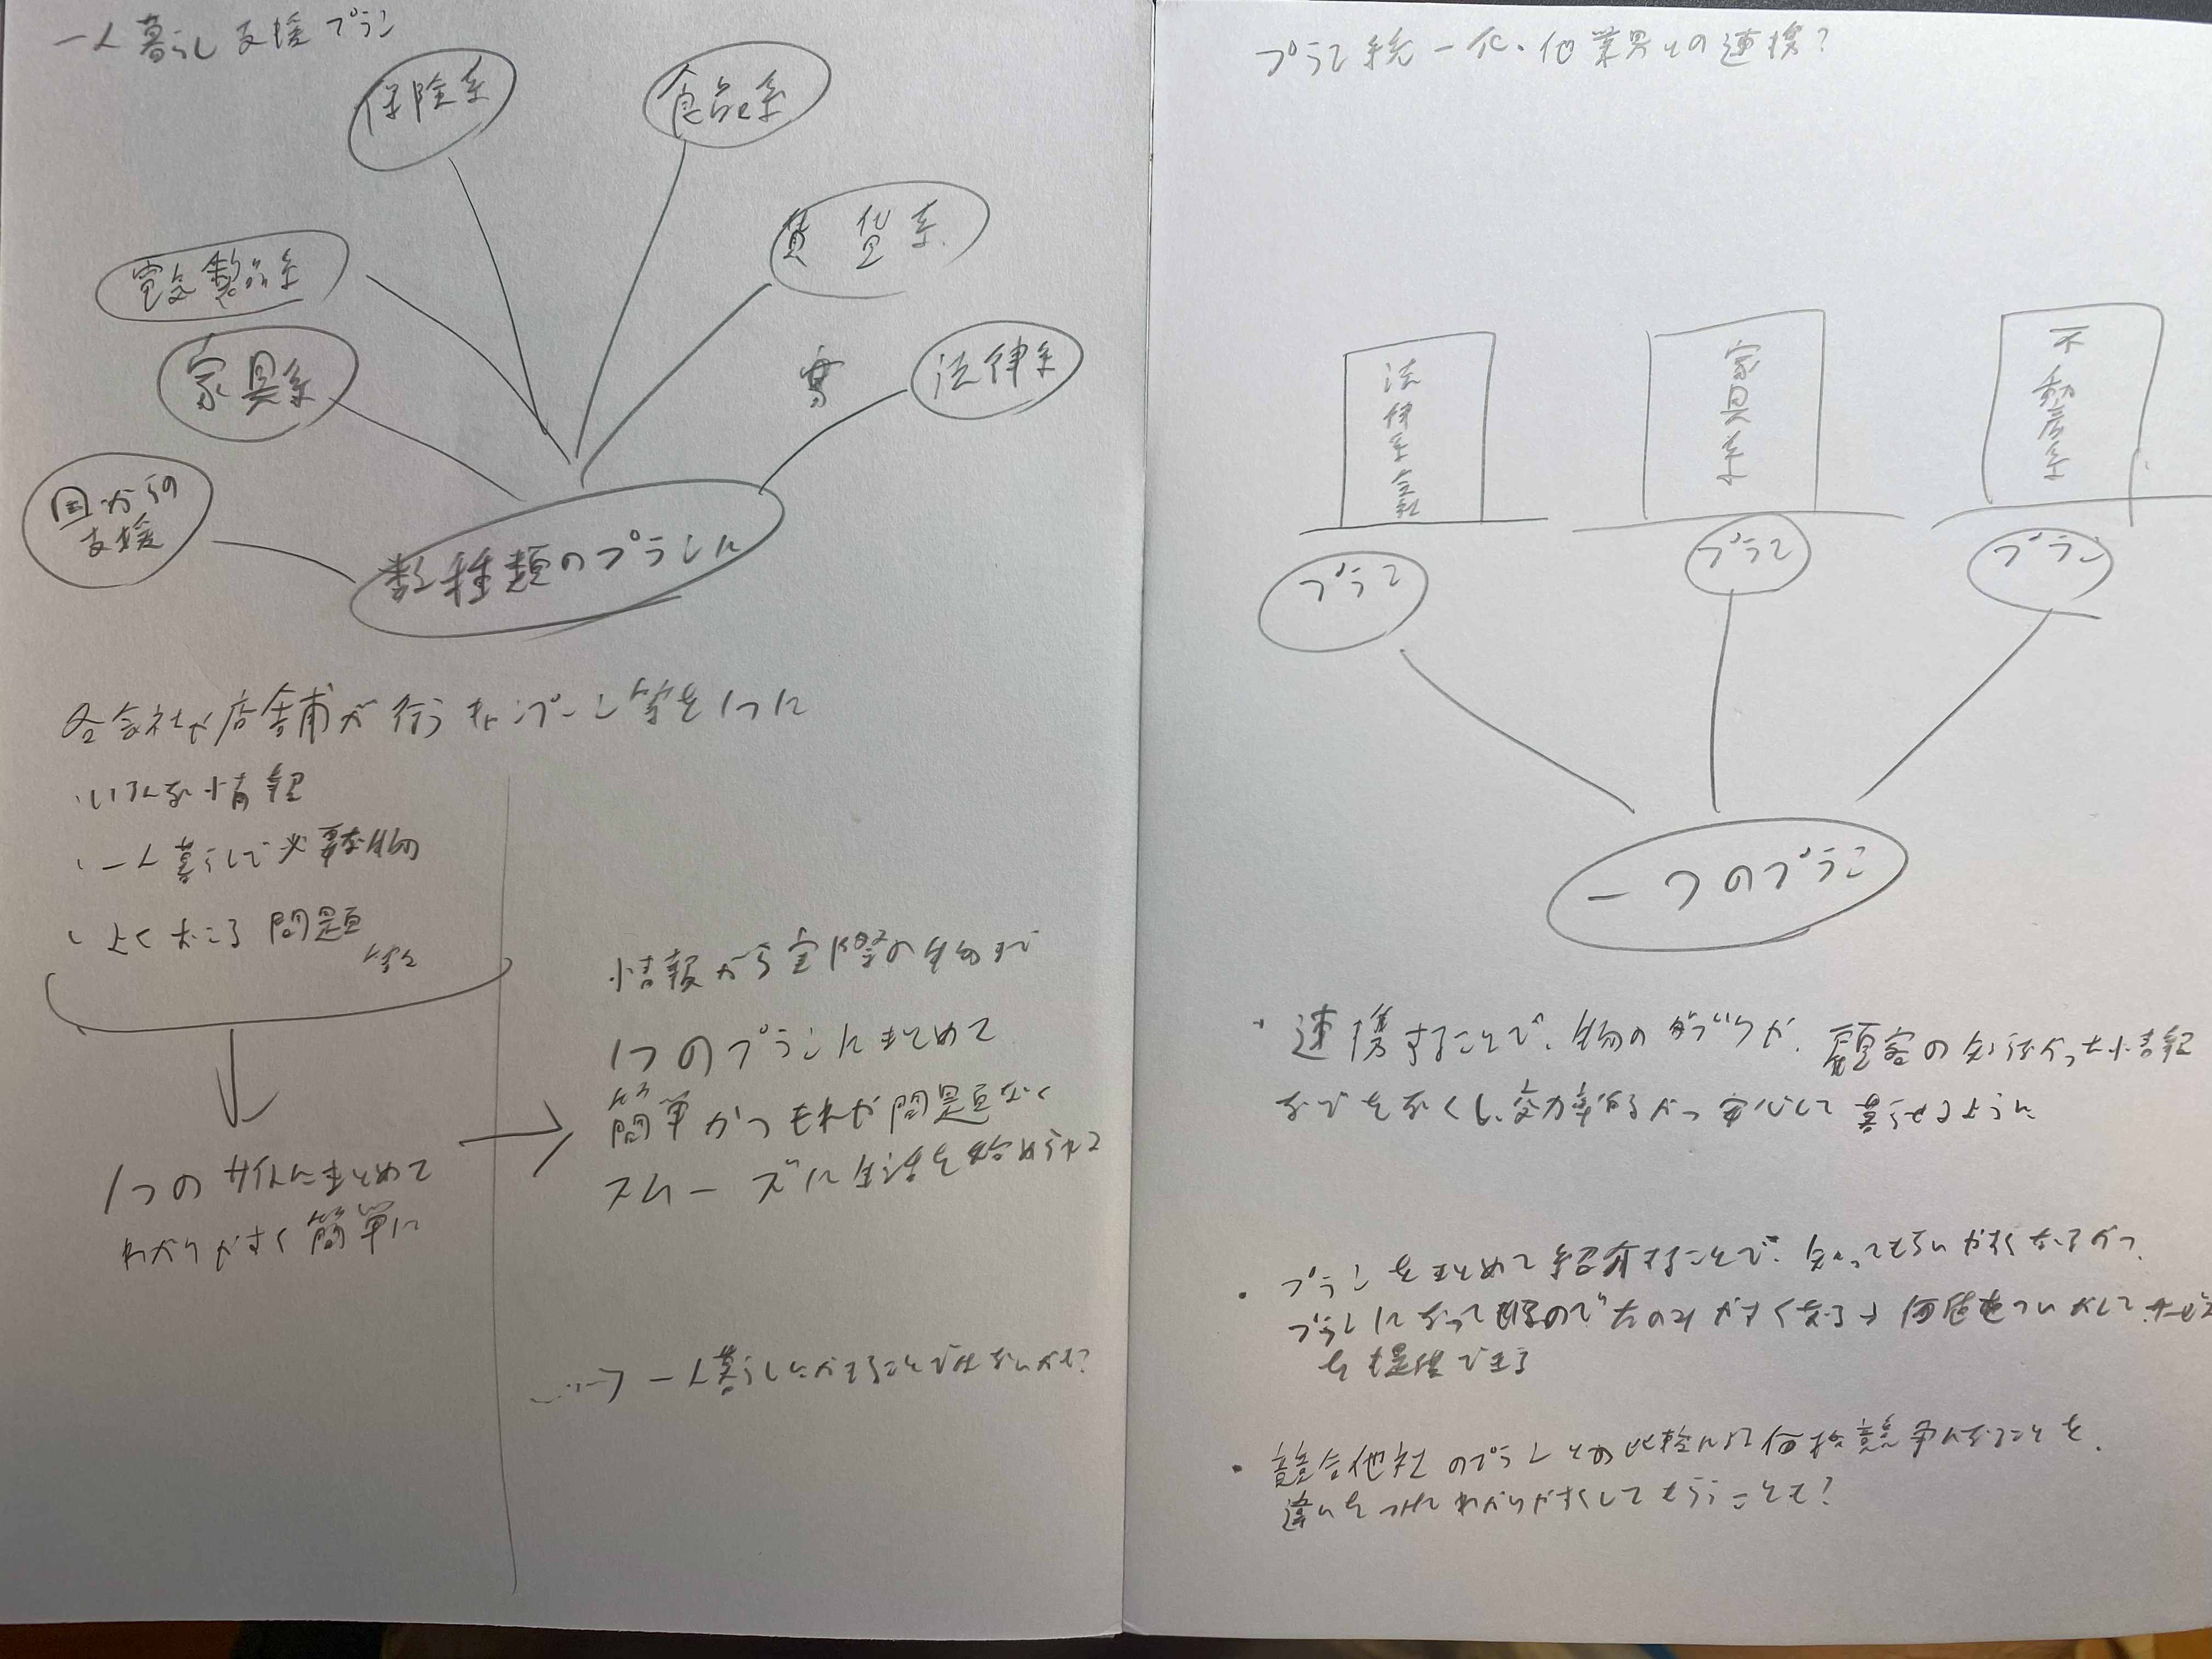 一人暮らし支援プラン
保険系
食品系
賃貸系
電気製品系
家具系
等
法律系
国からの
支援
数種類のプランに
各会社や店舗が行うキャンペーン等を1つに
・いろんな情報
・一人暮らしで必要な物
・よくおこる問題
等
1つのサイトにまとめて
わかりやすく簡単に
情報から実際の物まで
1つのプランにまとめて
簡単かつもれや問題なく
スムーズに生活を始められる
→一人暮らしにかぎることではないかも?
プラン統一化・他業界との連携?
法律系会社
家具系
不動産系
プラン
プラン
プラン
一つのプラン
・連携することで、物のダブりや、顧客の知らなかった情報
などをなくし、効率的かつ安心して暮らせるように
・プランをまとめて紹介することで、知ってもらいやすくなるかつ、
プランになっているのでたのみやすくなる→何度も サービス
を提供できる
・競合他社のプランとの比較による価格競争になることを、
違いを わかりやすくしてもらうことも?